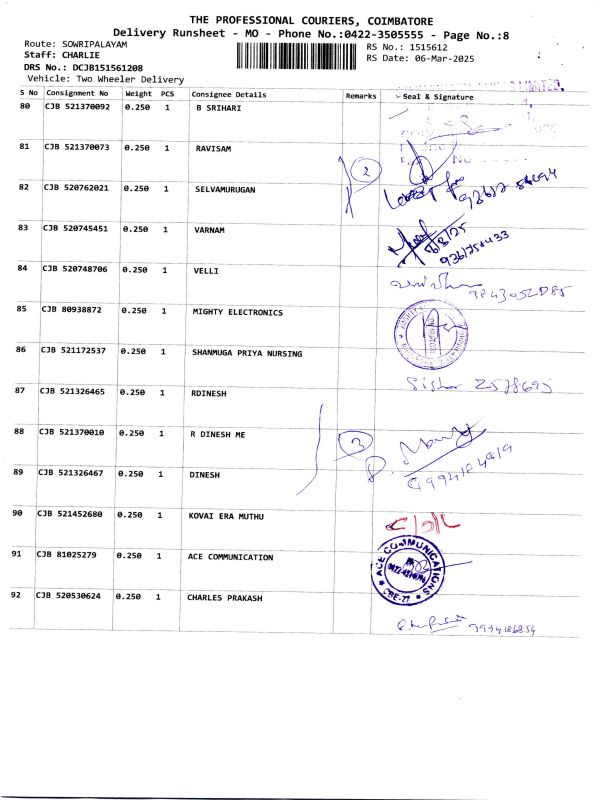 THE PROFESSIONAL COURIERS, COIMBATORE
Delivery Runsheet - MO - Phone No.:0422-3505555 - Page No.:8
Route: SOWRIPALAYAM
RS No.: 1515612
Staff: CHARLIE
RS Date: 06-Mar-2025
DRS No.: DCJB151561208
Vehicle: Two Wheeler Delivery
S No Consignment No Weight PCS Consignee Details Remarks Seal & Signature
80 CJB 521370092 0.250 1 B SRIHARI
81 CJB 521370073 0.250 1 RAVISAM
2
82 CJB 520762021 0.250 1 SELVAMURUGAN
83 CJB 520745451 0.250 1 VARNAM
84 CJB 520748706 0.250 1 VELLI
85 CJB 80938872 0.250 1 MIGHTY ELECTRONICS
86 CJB 521172537 0.250 1 SHANMUGA PRIYA NURSING
87 CJB 521326465 0.250 1 RDINESH
88 CJB 521370010 0.250 1 R DINESH ME
3
89 CJB 521326467 0.250 1 DINESH
90 CJB 521452680 0.250 1 KOVAI ERA MUTHU
91 CJB 81025279 0.250 1 ACE COMMUNICATION
ACE COMMUNICATIONS
CBE-27
92 CJB 520530624 0.250 1 CHARLES PRAKASH
9994186854